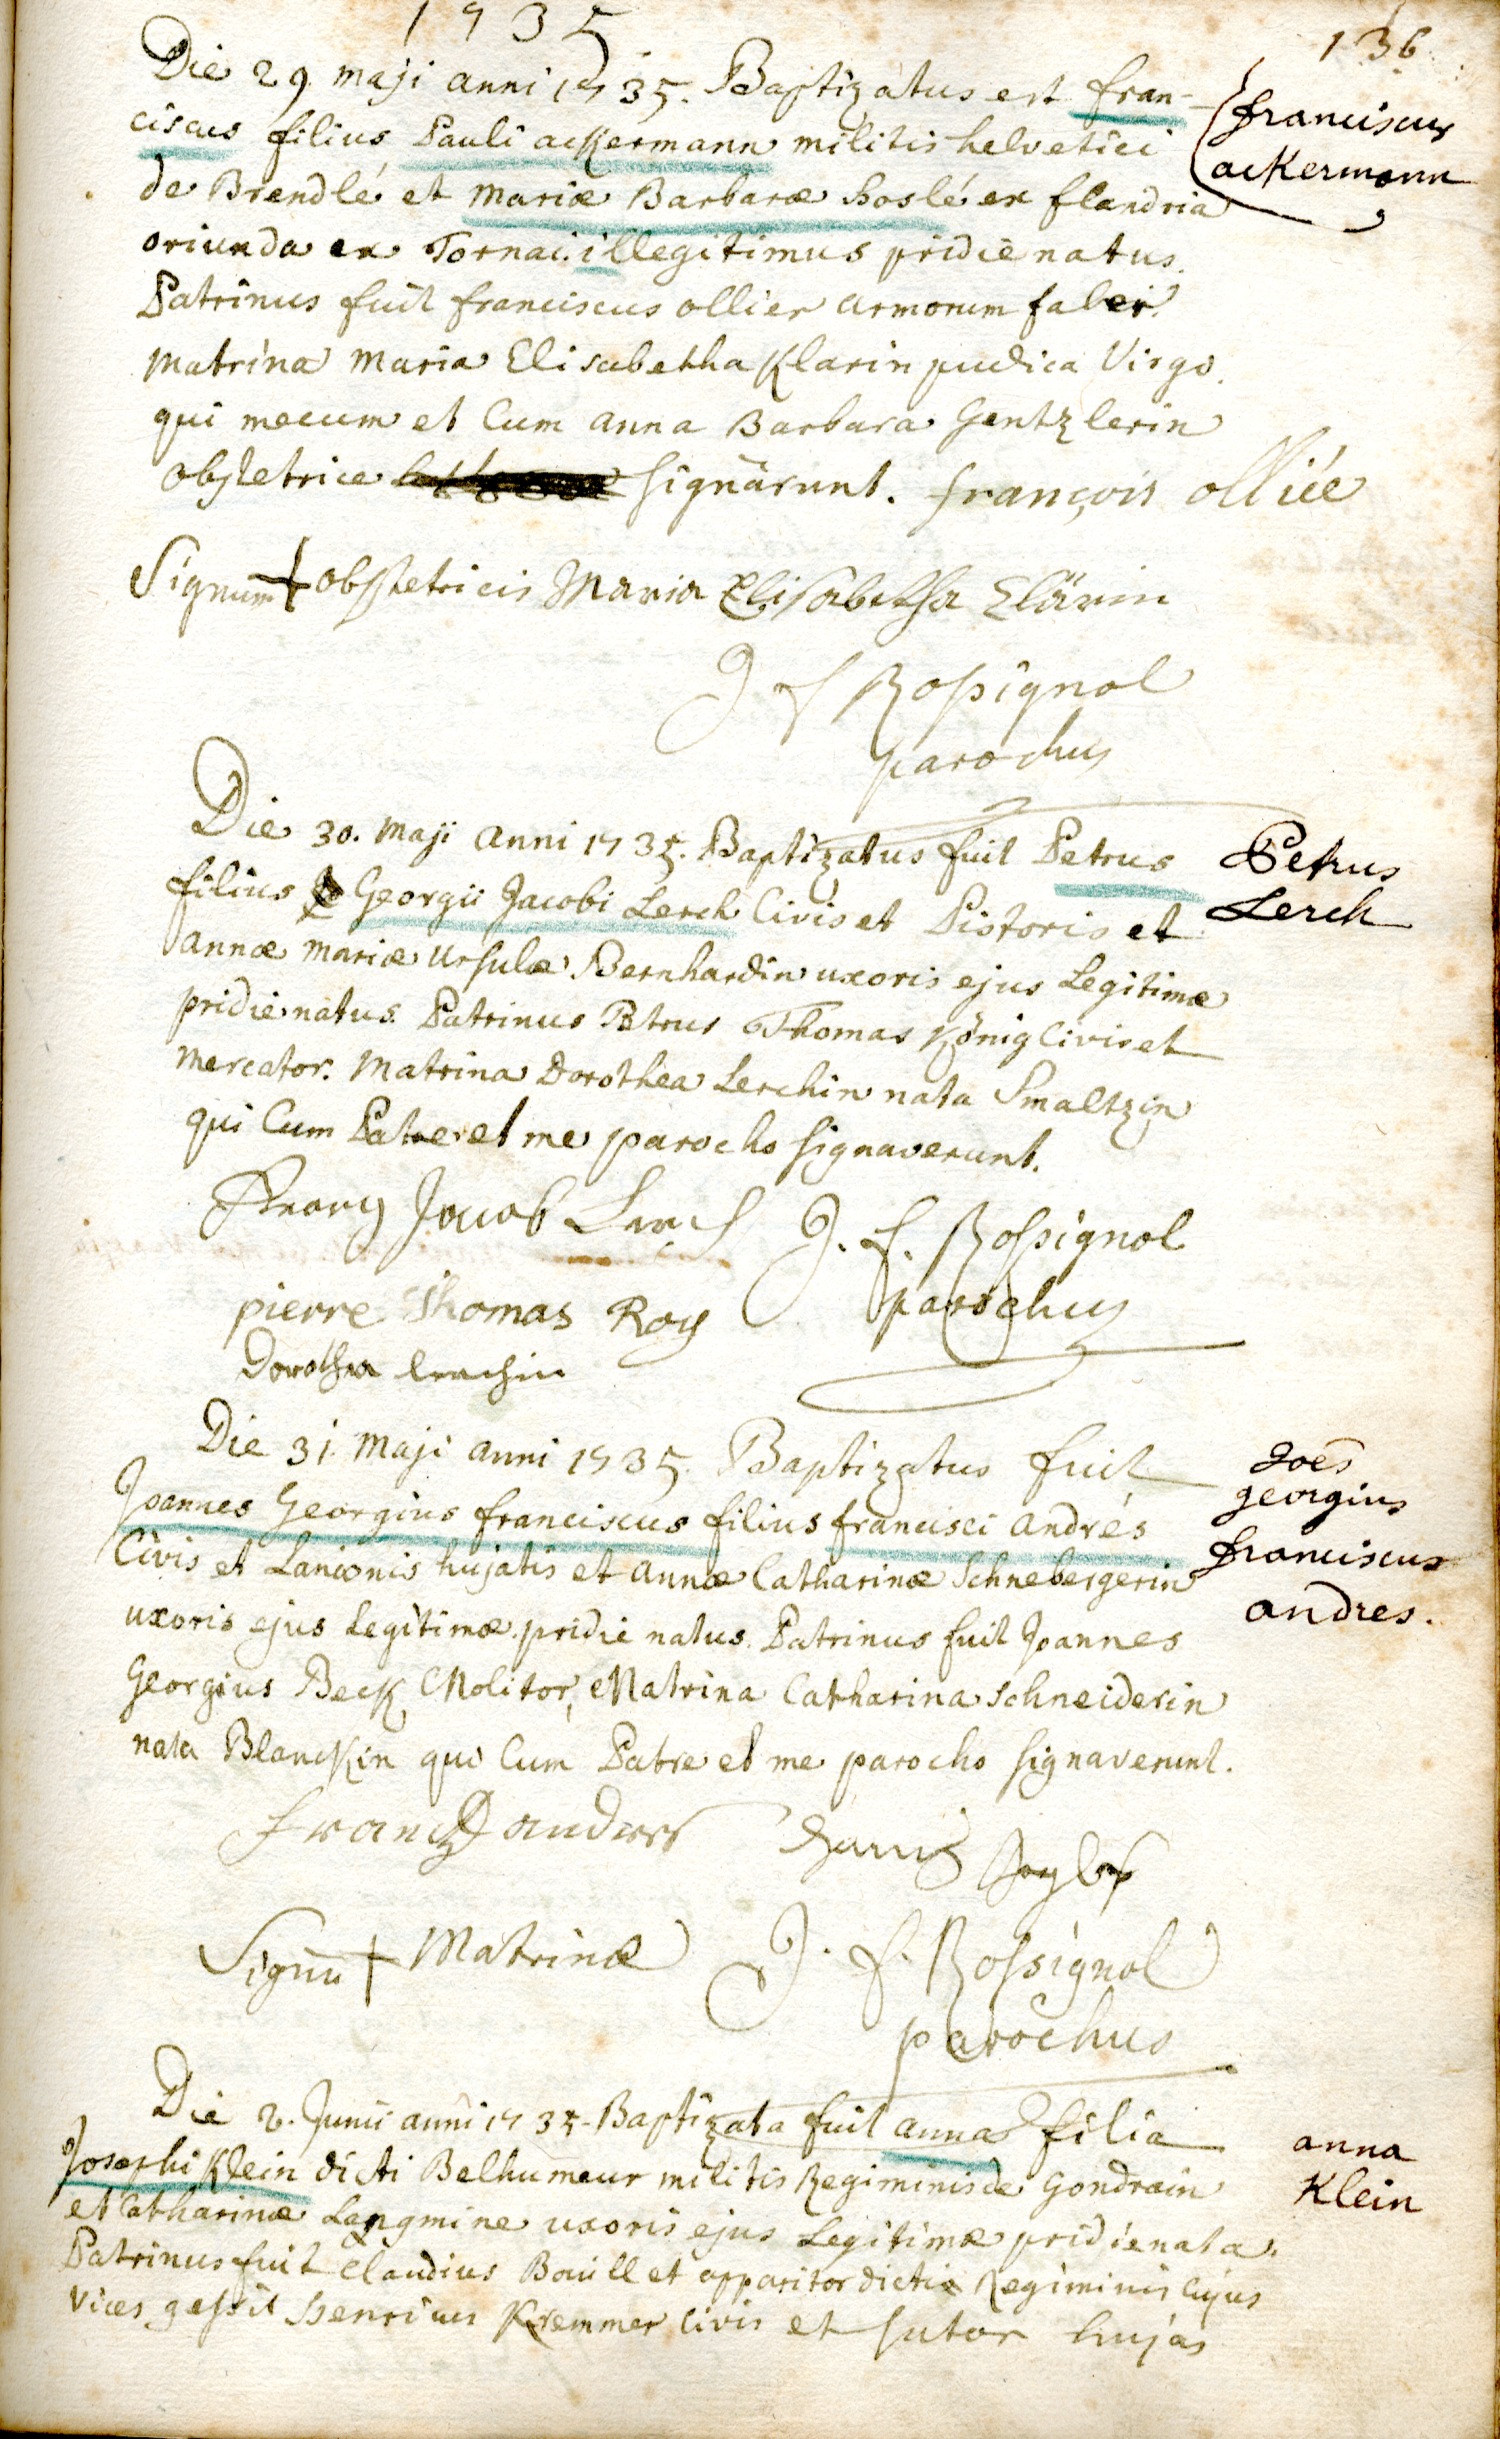 1735
136
Die 29 maji anni 1735. Baptizatus est fran-
ciscus filius Pauli ackermann militis helvetici
de Brendlé et mariæ Barbaræ hoslé ex flandria
oriunda ex Tornai. illegitimus pridie natus.
Patrinus fuit franciscus ollier armorum faber.
matrina maria Elisabetha Klarin pudica Virgo.
qui mecum et Cum anna Barbara Gentzlerin
obstetrice signarunt. françois olliée
franciscus
ackermann
Signum + obstetricis Maria Elisabetha Clärin
J f Rossignol
parochus
Die 30. maji anni 1735. Baptizatus fuit Petrus
filius Georgii Jacobi Lerch Civis et Pistoris et
annæ mariæ Ursulæ Bernhardin uxoris ejus Legitimæ
pridie natus. Patrinus Petrus Thomas König Civis et
mercator. Matrina Dorothea Lerchin nata Smaltzin
qui Cum Patre et me parocho signaverunt.
Petrus
Lerch
Georg Jacob Lerch J. f. Rossignol
parochus
pierre Thomas Roy
Dorothea lerchin
Die 31. maji anni 1735. Baptizatus fuit
Joannes Georgius franciscus filius francisci andrés
Civis et Lanionis hujatis et annæ Catharinæ Schnebergerin
uxoris ejus Legitimæ pridie natus. Patrinus fuit Joannes
Georgius Beck Molitor, Matrina Catharina Schneiderin
nata Blanckin qui Cum Patre et me parocho signaverunt.
Joes
georgius
franciscus
andres.
Frantz andres
Signu + Matrinæ J. f. Rossignol
parochus
Die 2. Junii anni 1735. Baptizata fuit anna filia
Josephi Klein dicti Belhumeur militis Regiminis de Gondrain
et Catharinæ Langmine uxoris ejus Legitimæ pridie nata.
Patrinus fuit Claudius Bouillet apparitor dicti Regiminis Cujus
Vices gessit henricus Kremmer Civis et sutor hujas
anna
Klein